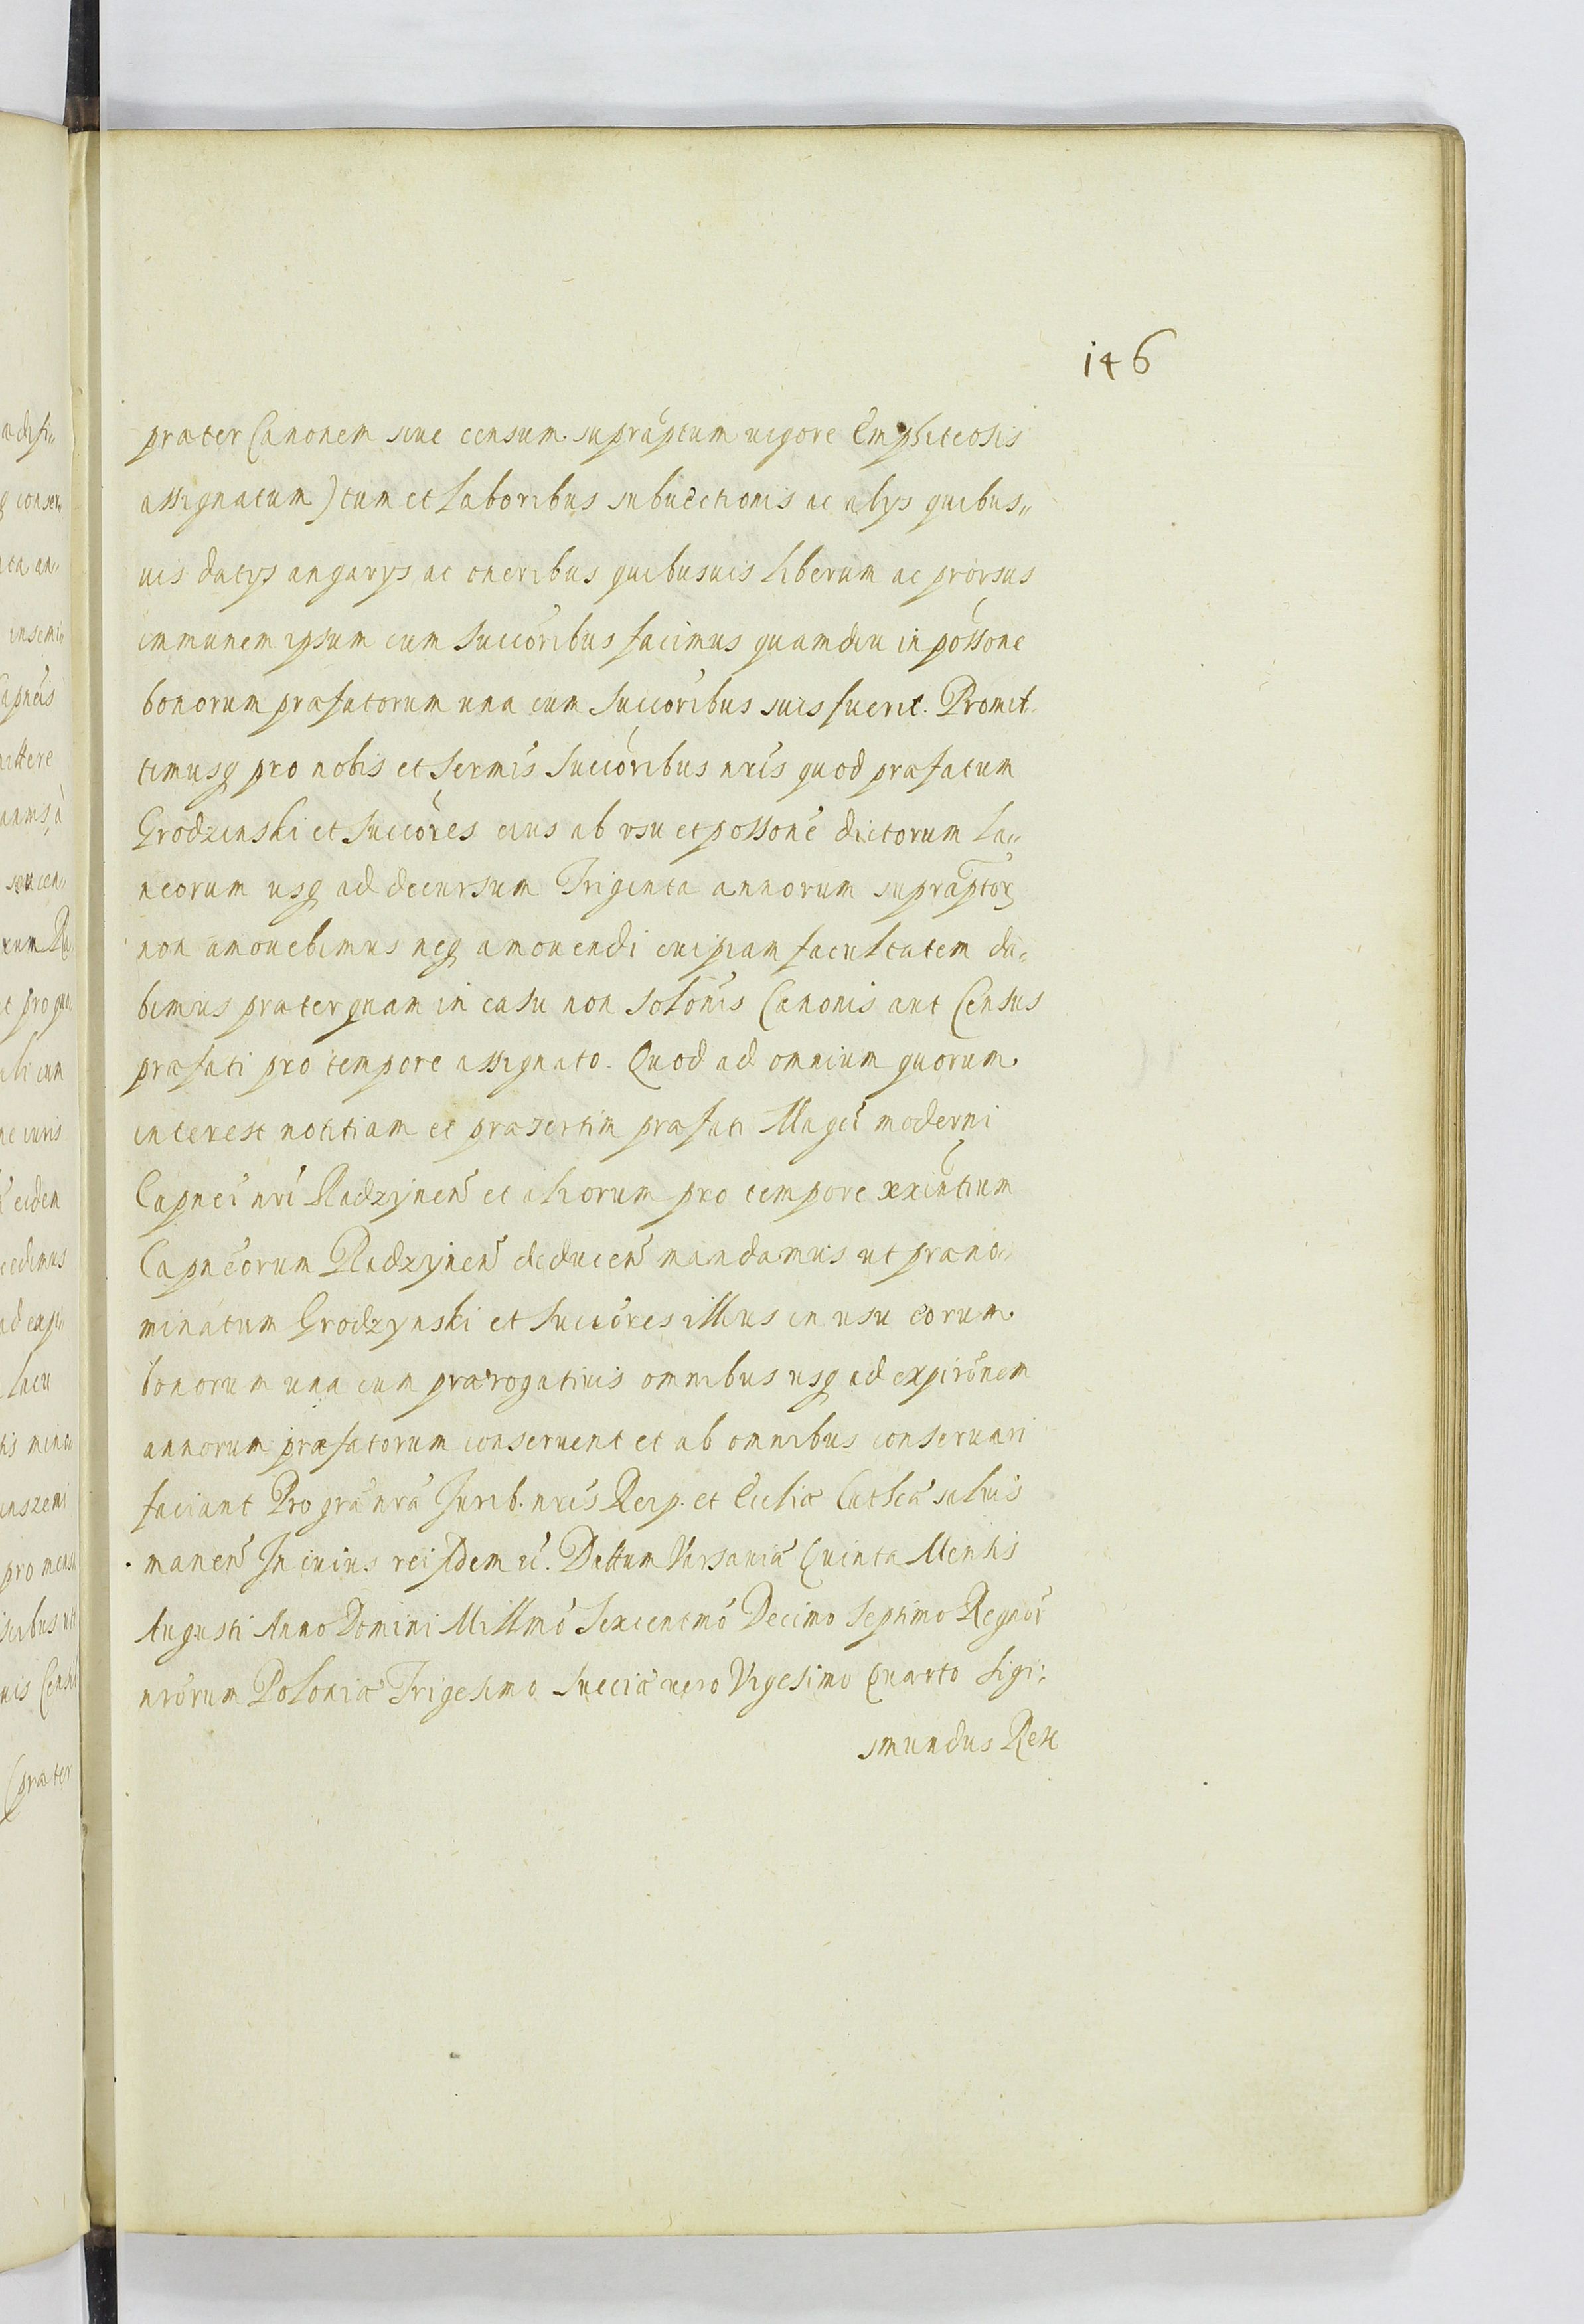 146
præter Canonem siue censum supráptum uigore Emphiteosis
assignatum) tum et laboribus subuectionis ac alys quibus„
uis datys angarys ac oneribus quibusuis liberum ac prorsus
immunem ipsum cum succoribus facimus quamdiu in possone
bonorum præfatorum una cum succoribus suis fuerit. Promit„
timusq pro nobis et sermis succoribus nris quod præfatum
Grodzinski et succores eius ab usu et possone dictorum la„
neorum usq ad decursum Triginta annorum supraptor
non amouebimus neq amouendi cuipiam facultatem da„
bimus præterquam in casu non solonis Canonis aut Census
præfati pro tempore assignato. Quod ad omnium quorum
interest notitiam et præsertim præfati Magci moderni
Capnei nri Radzynen et aliorum pro tempore exintium
Capneorum Radzynen deducen mandamus ut præno„
minatum Grodzynski et succores illius in usu eorum
bonorum una cum prærogatiuis omnibus usq ad expironem
annorum præfatorum conseruent et ab omnibus conseruari
faciant Pro gra nra Jurib. nris Reip. et Ecclie Cathca saluis
manen In cuius rei fidem &c. Dattum Varsauiæ Quinta Mensis
Augusti Anno Domini Millmo Sexcentmo Decimo Septimo Regnor
nrorum Poloniæ Trigesimo Sueciæ uero Vigesimo Quarto Sigi„
smundus Rex